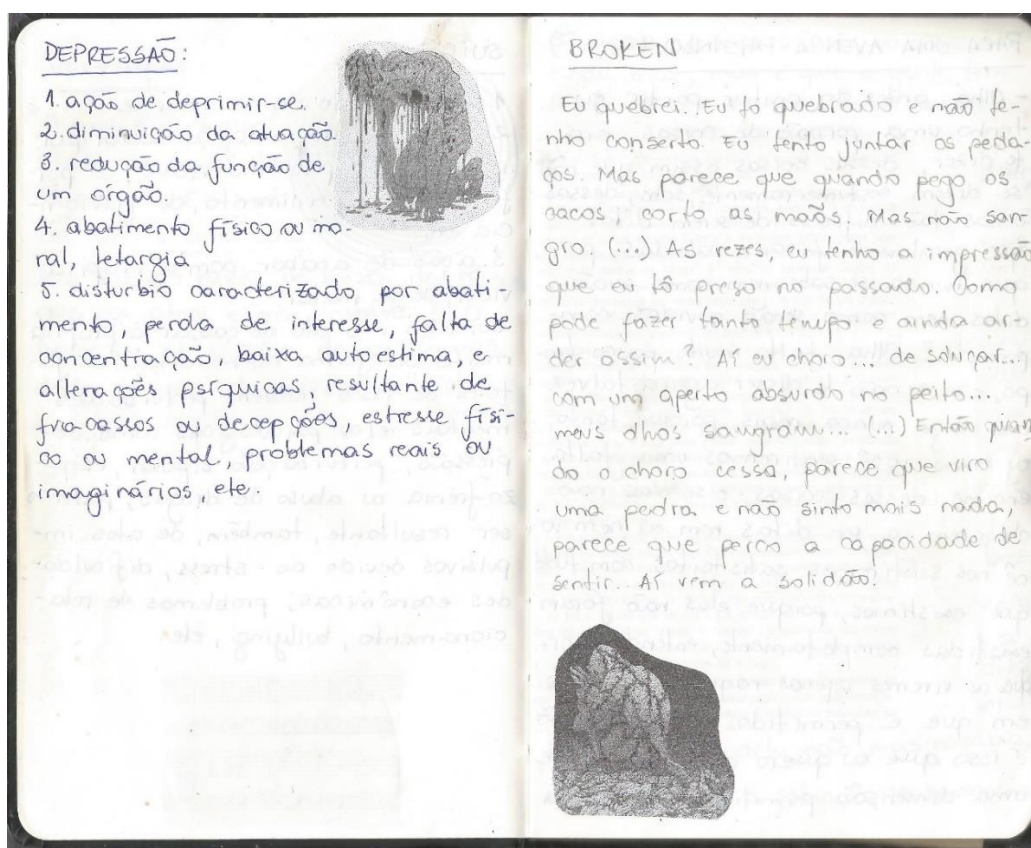 DEPRESSÃO:
1. ação de deprimir-se.
2. diminuição da atuação.
3. redução da função de
um orgão.
4. abatimento físico ou mo-
ral, letargia.
5. disturbio caracterizado por abati-
mento, perda de interesse, falta de
concentração, baixa autoestima, e
alterações psíquicas, resultante de
fracassos ou decepções, estresse físi-
co ou mental, problemas reais ou
imaginários, etc.
BROKEN
Eu quebrei. Eu tô quebrado e não te-
nho conserto. Eu tento juntar os peda-
ços. Mas parece, que quando pego os
cacos, corto as mãos. Mas não san-
gro. (...) As vezes, eu tenho a impressão
que eu tô preso no passado. Como
pode fazer tanto tempo e ainda ar-
der assim? Aí eu choro... de soluçar...
com um aperto absurdo no peito...
meus olhos sangram... (...) Então quan-
do o choro cessa, parece que viro
uma pedra e não sinto mais nada,
parece que perco a capacidade de
sentir. Aí vem a solidão.